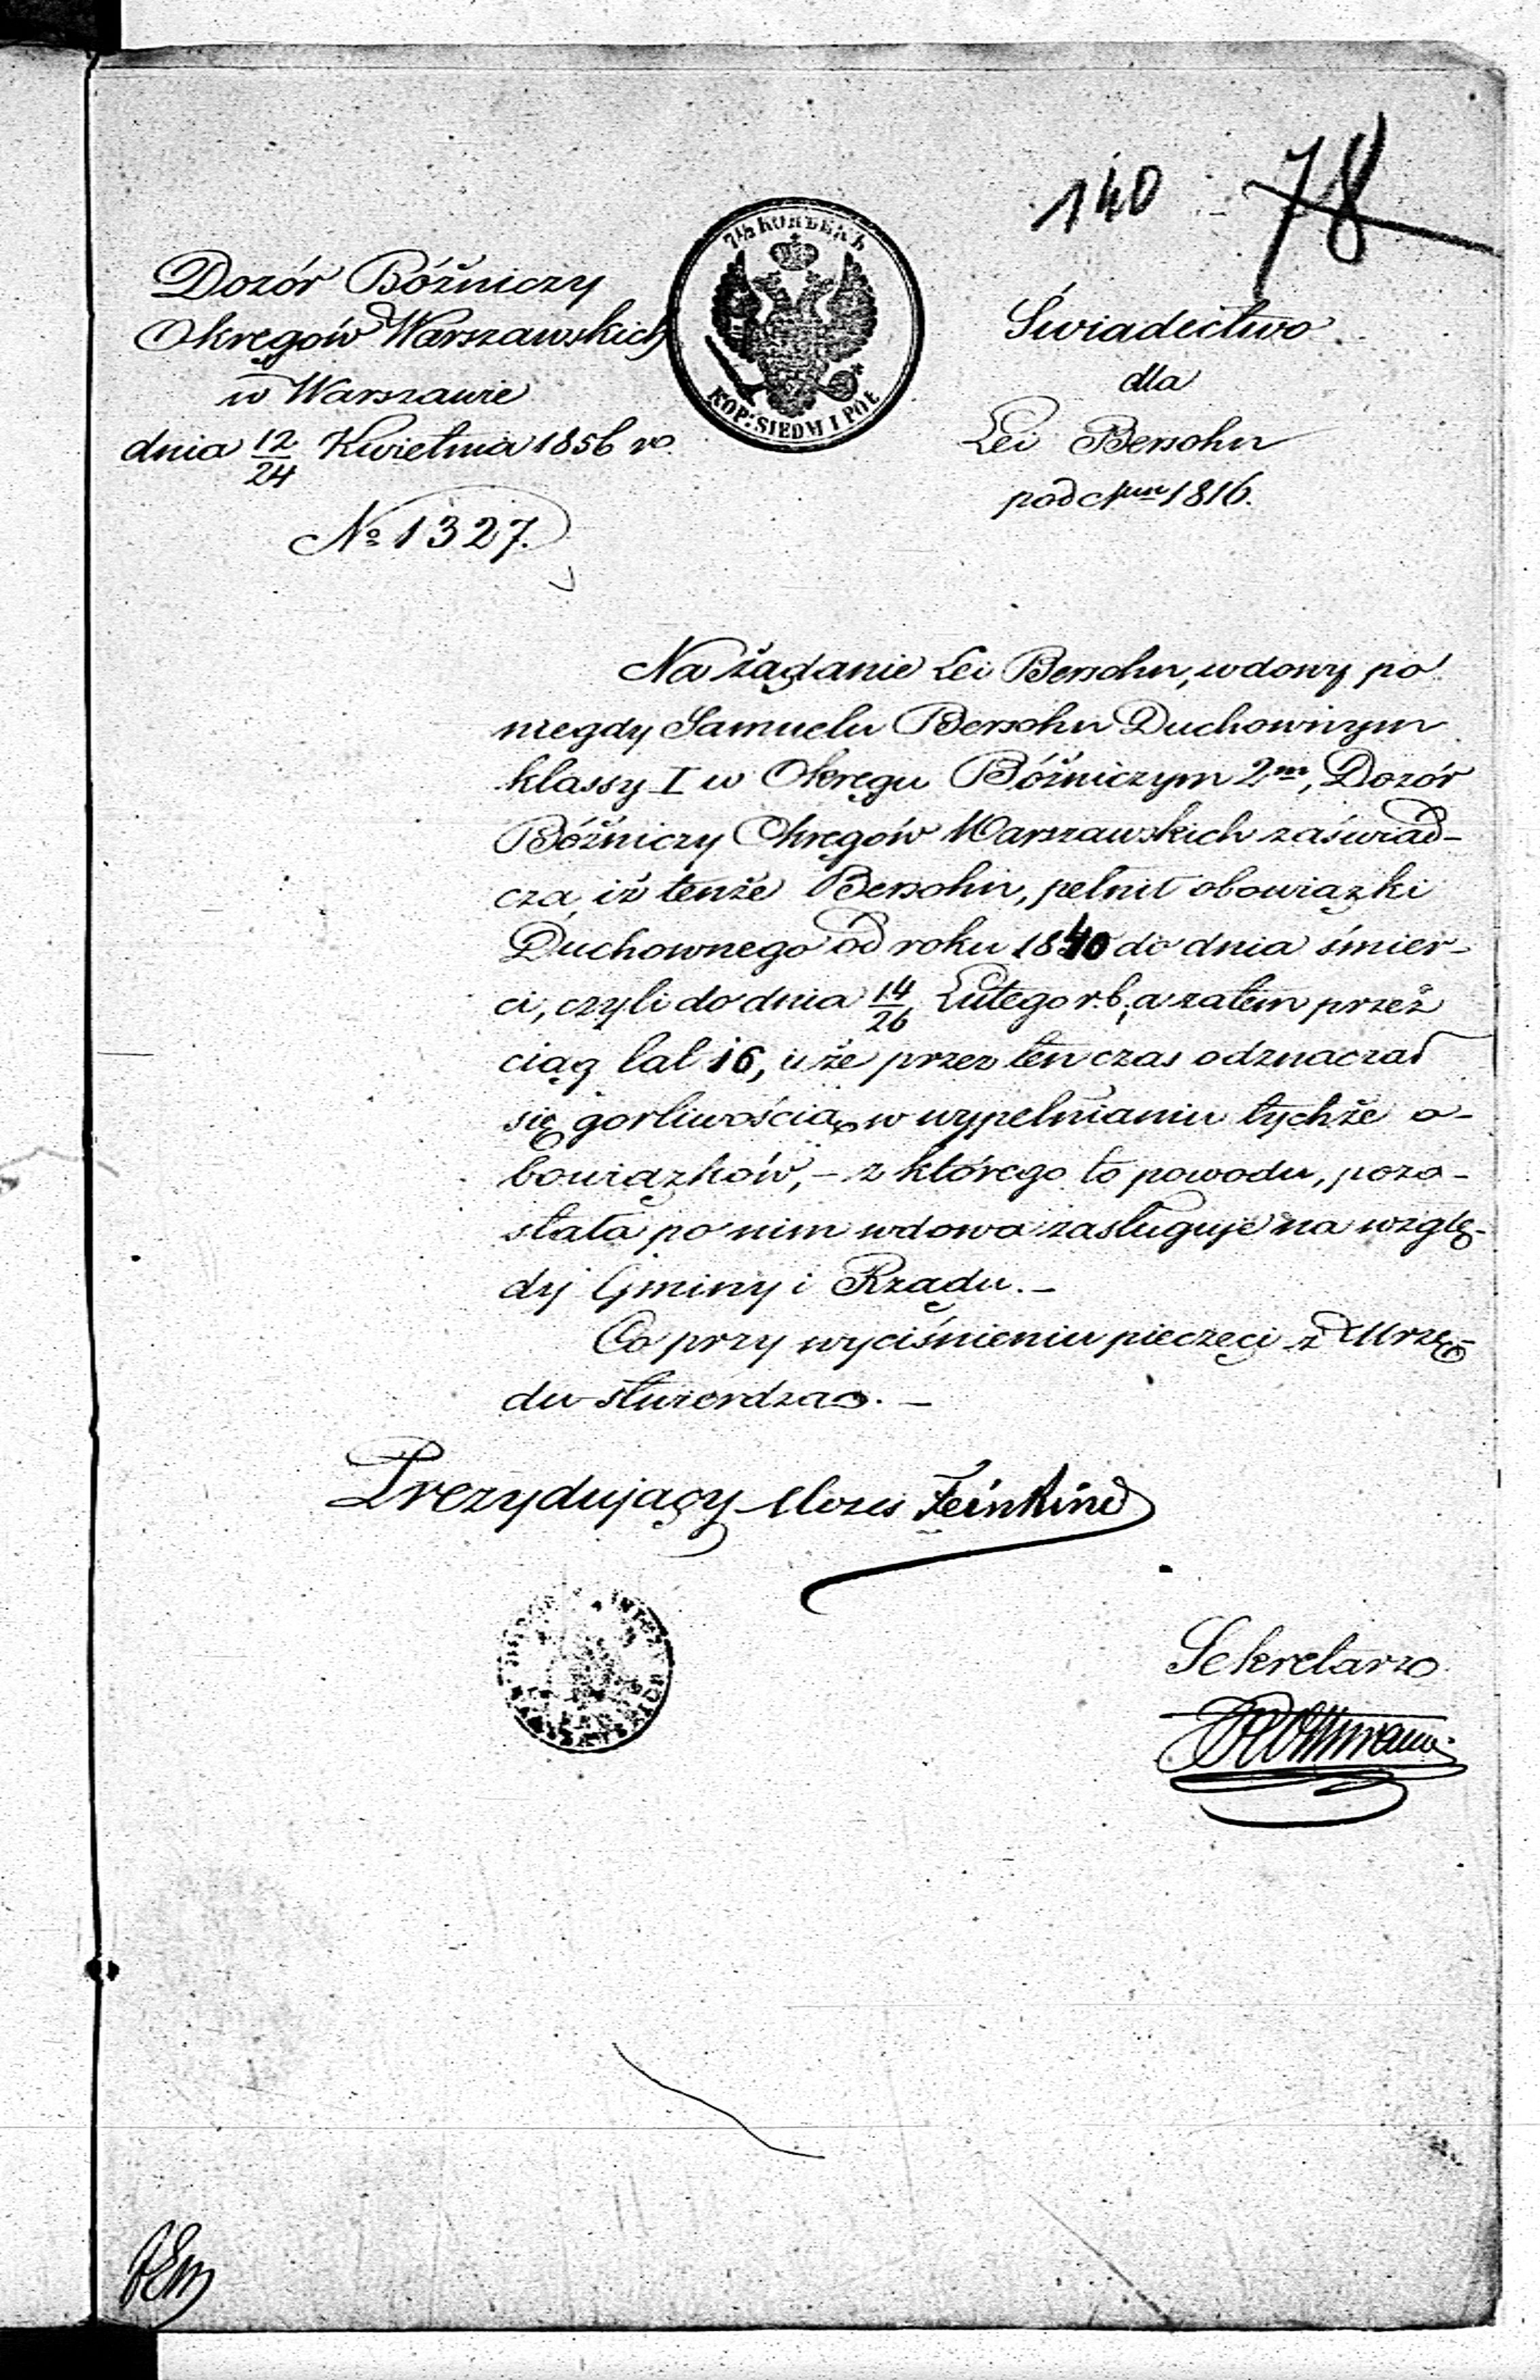 140 78
Dozór Bóżniczy
Okręgów Warszawskich
w Warszawie
dnia 12/24 Kwietnia 1856 r.
№ 1327.
7½ КОПѢЕКЪ
KOP: SIEDM I PÓŁ
Świadectwo
dla
Lei Bersohn
pod Nrem 1816.
Na żądanie Lei Bersohn, wdowy po
niegdy Samuelu Bersohn Duchownym
klassy I w Okręgu Bóżniczym 2m, Dozór
Bóżniczy Okręgów Warszawskich zaświad-
cza, iż tenże Bersohn, pełnił obowiązki
Duchownego od roku 1840 do dnia śmier-
ci, czyli do dnia 14/26 Lutego r.b., a zatem przez
ciąg lat 16, i że przez ten czas odznaczał
się gorliwością w wypełnianiu tychże o-
bowiązków, – z którego to powodu, pozo-
stała po nim wdowa zasługuje na wzglę-
dy Gminy i Rządu. –
Co przy wyciśnieniu pieczęci z Urzę-
du stwierdza. –
Prezydujący Mozes Feinkind
Sekretarz